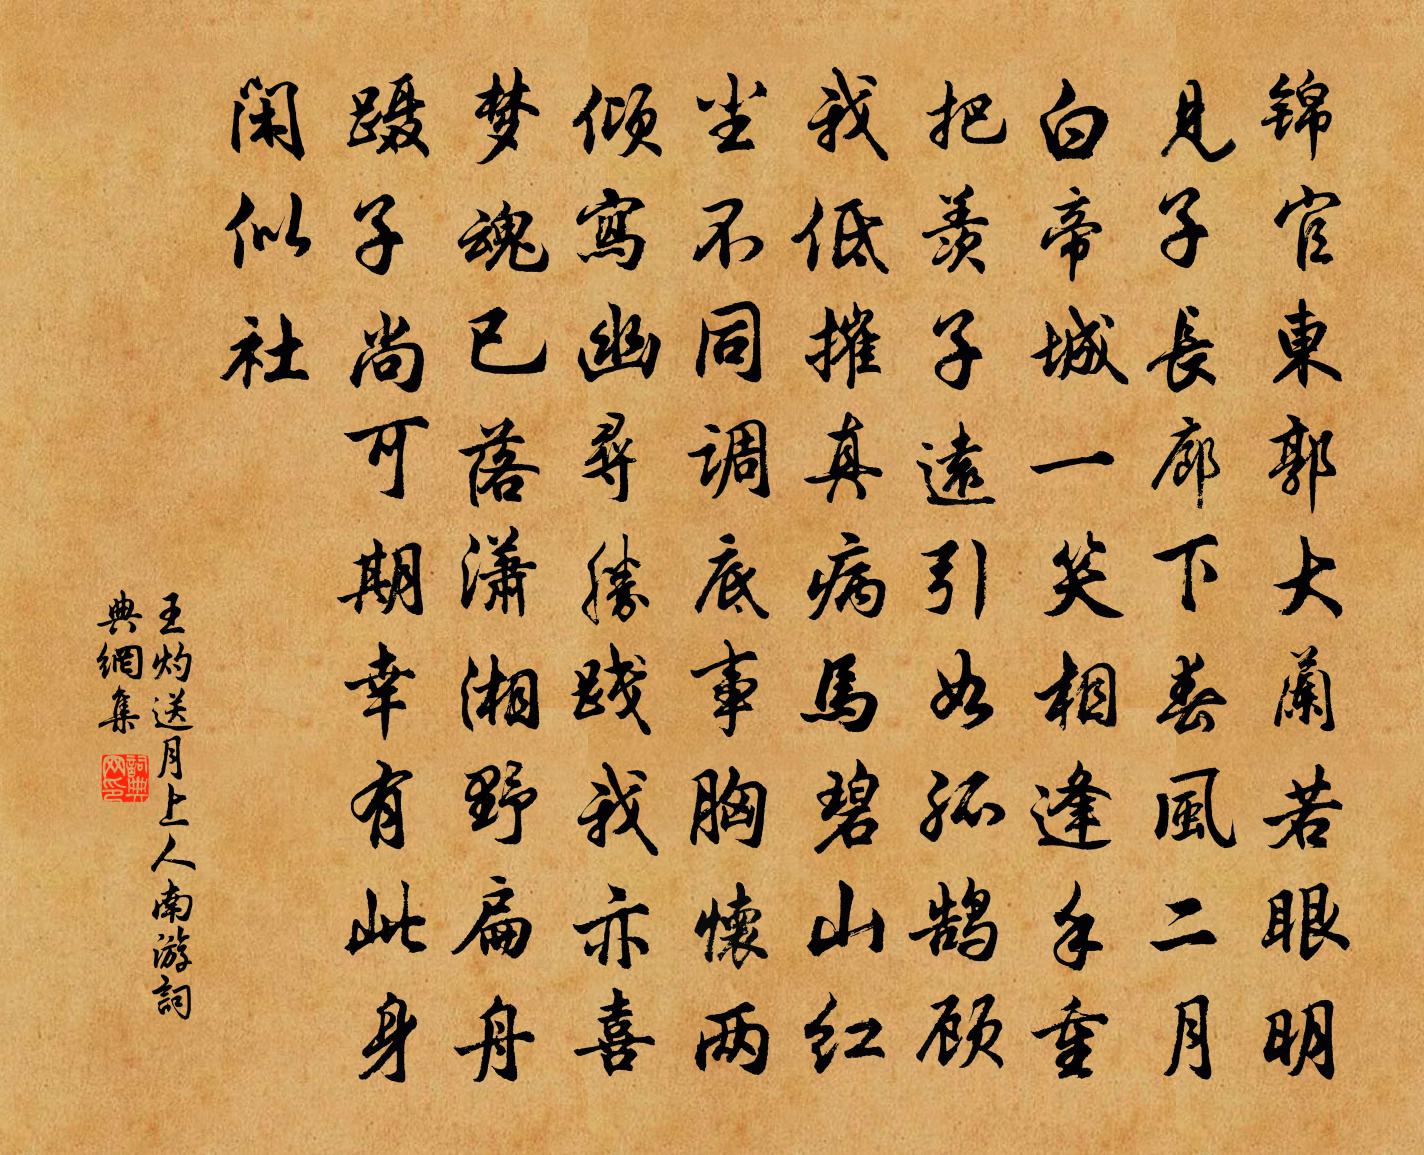 锦官東郭大蘭若眼明
見子長廊下春風二月
白帝城一笑相逢手重
把羨子遠引如孤鹄顾
我低摧真病馬碧山红
尘不同调底事胸懷两
倾寫幽尋勝践我亦喜
梦魂已落潇湘野扁舟
蹑子尚可期幸有此身
闲似社
王灼送月上人南游詞
典網集
詞典
网印